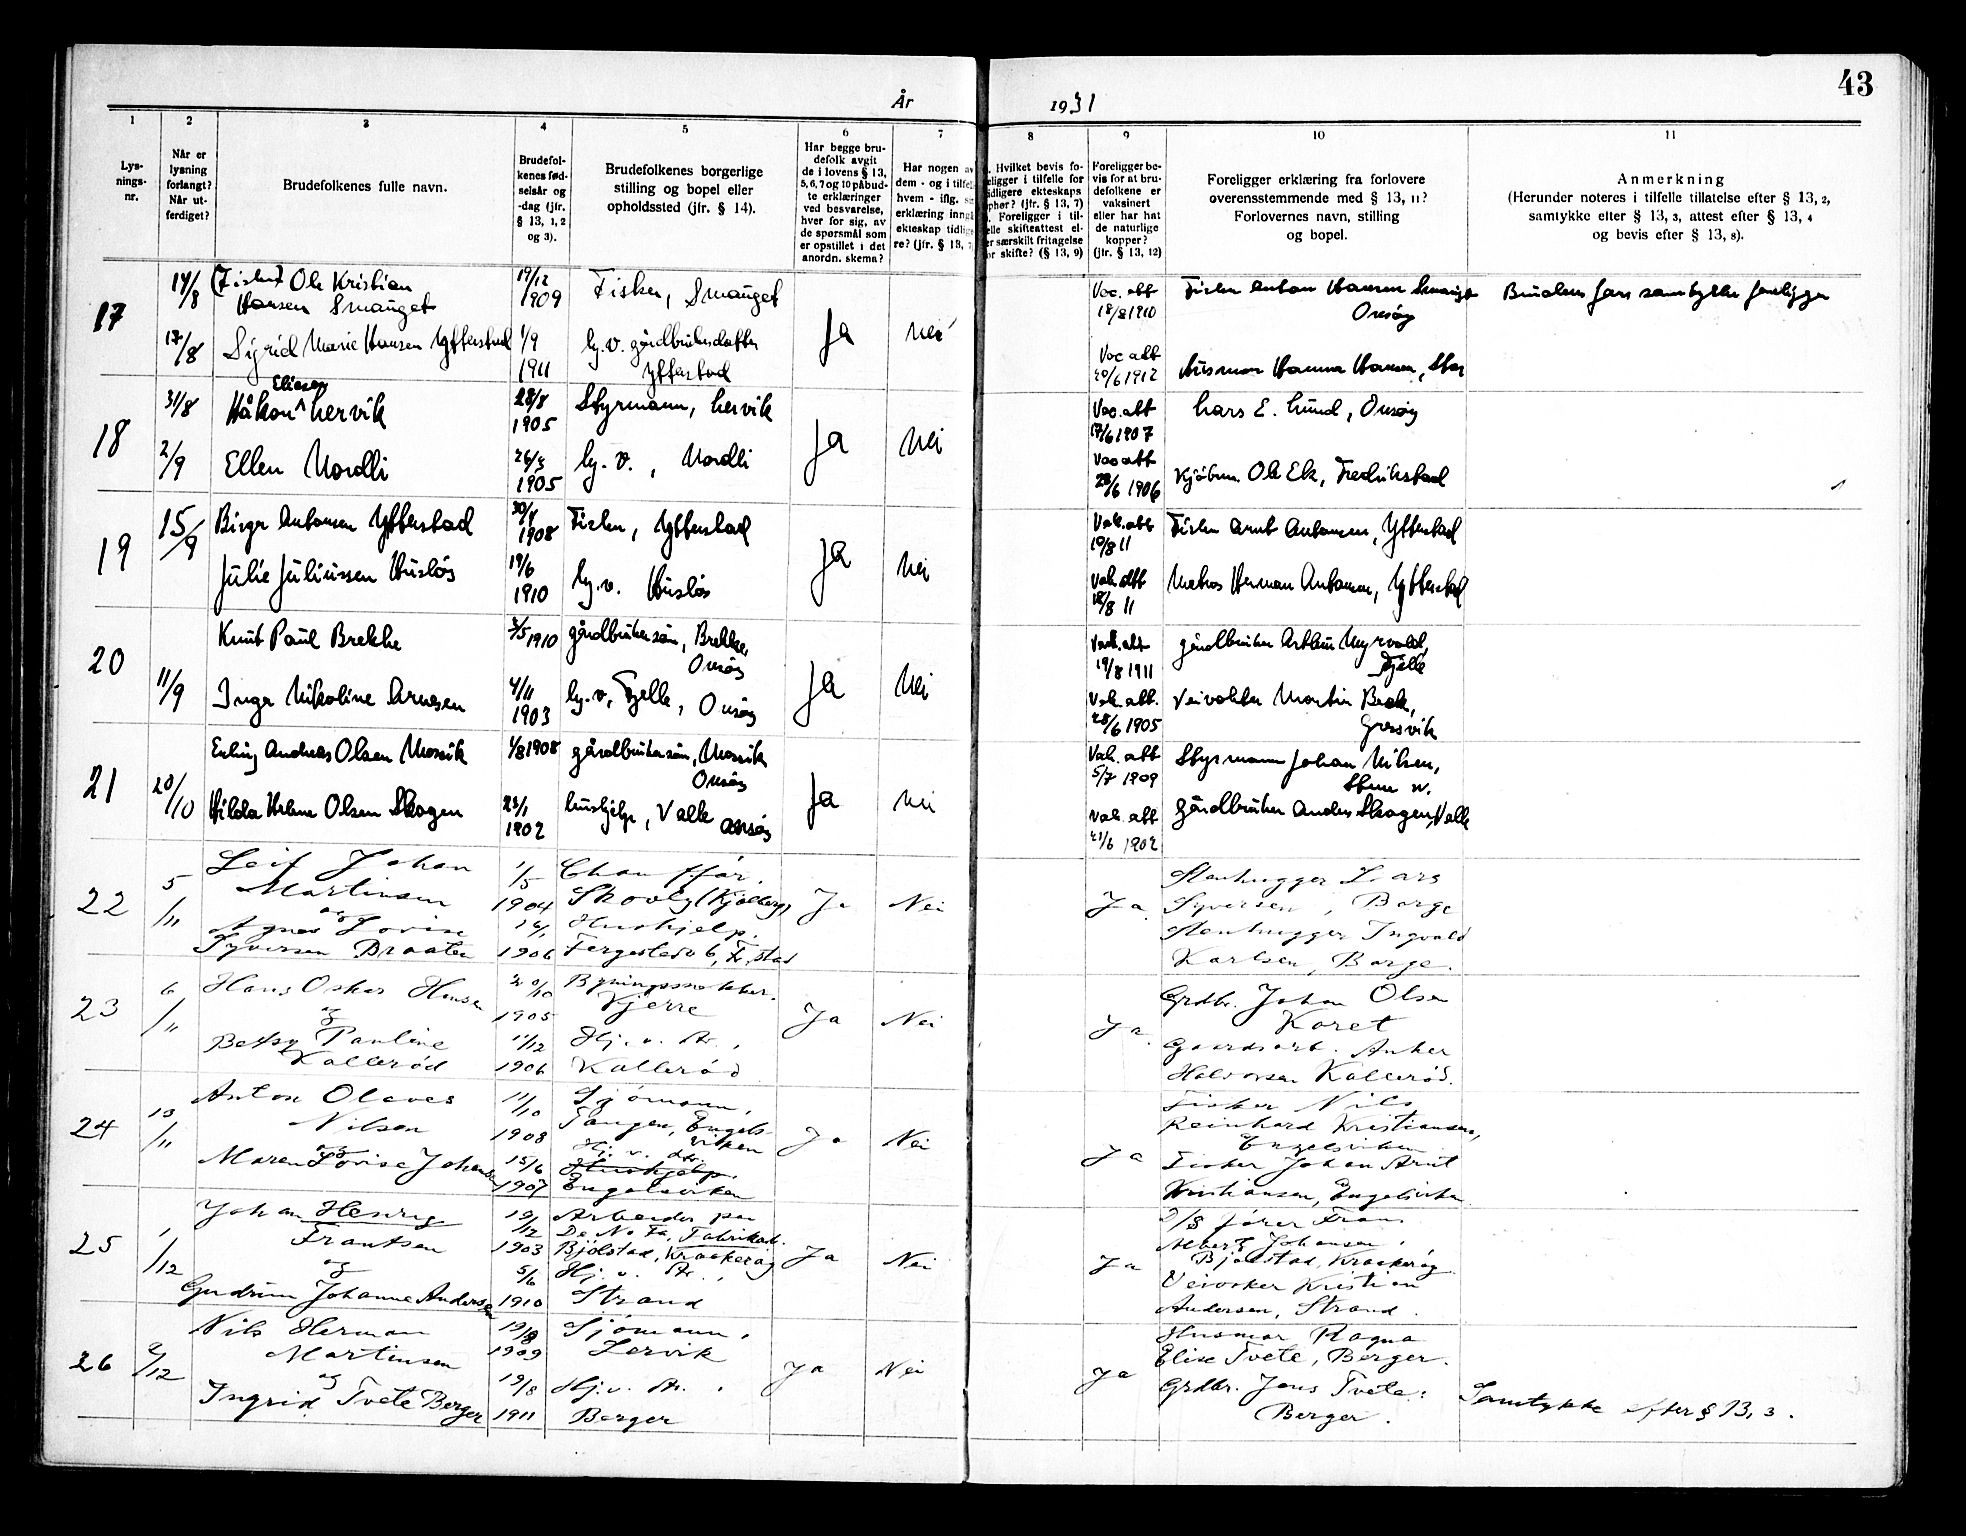 43
År 1931
1 2 3 4 5 6 7 8 9 10 11
Lys-
nings-
nr.
Når er
lysning
forlangt?
Når ut-
ferdiget?
Brudefolkenes fulle navn.
Brudefol-
kenes fød-
selsår og
-dag (jfr.
§ 13, 1, 2
og 3).
Brudefolkenes borgerlige
stilling og bopel eller
opholdssted (jfr. § 14).
Har begge bru-
defolk avgit
de i lovens § 13,
5, 6, 7 og 10 påbud-
te erklæringer
ved besvarelse,
hver for sig, av
de spørsmål som
er opstillet i det
anordn. skema?
Har nogen av
dem - og i tilfel
hvem - iflg.
erklæring inng
ekteskap tidlig
re? (jfr. § 13, 7
Hvilket bevis fo-
eligger i tilfelle for
idligere ekteskaps
phør? (jfr. § 13, 7)
Foreligger i til-
elle skifteattest el-
er særskilt fritagelse
or skifte? (§ 13, 9)
Foreligger be-
vis for at bru-
defolkene er
vaksinert
eller har hat
de naturlige
kopper?
(jfr. § 13, 12)
Foreligger erklæring fra forlovere
overensstemmende med § 13, 11?
Forlovernes navn, stilling
og bopel.
Anmerkning
(Herunder noteres i tilfelle tillatelse efter § 13, 2,
samtykke efter § 13, 3, attest efter § 13, 4
og bevis efter § 13, 8).
17
14/8
17/8
Ole Kristian
Hansen Smauget
Sigrid Marie Hansen Ytterstad
19/12
1909
1/9
1911
Fisker, Smauget
hj.v. gårdbrukerdatter
Ytterstad
Ja
Nei
Vac. att
18/8 1910
Vac att
20/6 1912
Fisker Anton Hansen Smauget
Onsøy
Husmor Hanna Hansen,
Brudens fars samtykke foreligger
18
31/8
2/9
Eliesen
Håkon ^ Lervik
Ellen Nordli
28/8
1905
1905
Styrmann, Lervik
hj. v., Nordli
Ja
Nei
Vac. att
17/6 1907
Vac att
1906
Lars E. Lund, Onsøy
Kjøbm. Ole Ek, Fredrikstad
19
15/9
Birger Antonsen Ytterstad
Julie Juliussen Husløs
1908
19/6
1910
Fisker, Ytterstad
hj.v. Husløs
Ja
Nei
Vak. att
10/8 11
Vak. att
18/8 11
Fisker Arnt Antonsen, Ytterstad
Matros Herman Antonsen, Ytterstad
20
11/9
Knut Paul Brekke
Inga Nikoline Arnesen
1910
4/11
1903
gårdbrukersøn, Brekke,
Onsøy
hj.v, Fjelle, Onsøy
Ja
Nei
Vak. att
19/8 1911
Vak. att.
28/6 1905
gårdbruker Arthur Myrvold,
Fjelle
Veivokter Martin Bæk,
Gressvik
21
20/10
Erling Andreas Olsen Mosvik
Hilda Helene Olsen Skogen
1/8 1908
23/1
1902
gårdbrukersøn, Mosvik
Onsøy
hushjelp, Valle Onsøy
Ja
Nei
Vak. att
5/7 1909
Vak. att
21/6 1902
Styrmann Johan Nilsen,
gårdbruker Anders Skogen, Valle
22
5/11
Leif Johan
Martinsen
og
Agnes Lovise
Syversen Braaten
1/5
1904
1906
Chauffør.
Skovly (Kjølberg)
Hushjelp.
Fergestedv 6, Fr.stad
Ja
Nei
Ja
Stenhugger Lars
Syversen, Borge
Stenhugger Ingvald
Karlsen, Borge.
23
6/11
Hans Oskar Hansen
og
Betsy Pauline
Kallerød
20/10
1905
11/12
1906
Bygningssnekker.
Kjerre
Hj. v. Dr.,
Kallerød
Ja
Nei
Ja
Grdbr. Johan Olsen
Karet
Gaardsarb. Anker
Halvorsen Kallerød.
24
13/11
Anton Olaves
Nilsen
og
Maren Lovise Johansen
11/10
1908
15/6
1907
Sjømann,
Tangen, Engels-
viken
Hj. v. dtr.
Hushjelp.
Engelsviken
Ja
Nei
Ja
Fisker Nils
Reinhard Kristiansen,
Engelsviken
Fisker Johan Arnt
Kristiansen, Engelsviken
25
1/12
Johan Henrig
Frantsen
og
Gudrun Johanne Andersen
19/12
1903
5/6
1910
Arbeider paa
De No Fa, Fabrikad.
Bjølstad, Kraakerøy
Hj. v. Dr.,
Strand
Ja
Nei
Ja
D/S fører Frans
Albert Johansen,
Bjølstad, Kraakerøy
Veivokter Kristian
Andersen, Strand.
26
2/12
Nils Herman
Martinsen
og
Ingrid Tvete Berger
19/8
1909
19/8
1911
Sjømann,
Lervik
Hj. v. Dr.,
Berger
Ja
Nei
Ja
Husmor Ragna
Elise Tvete, Berger.
Grdbr. Jens Tvete:
Berger.
Samtykke efter § 13, 3.